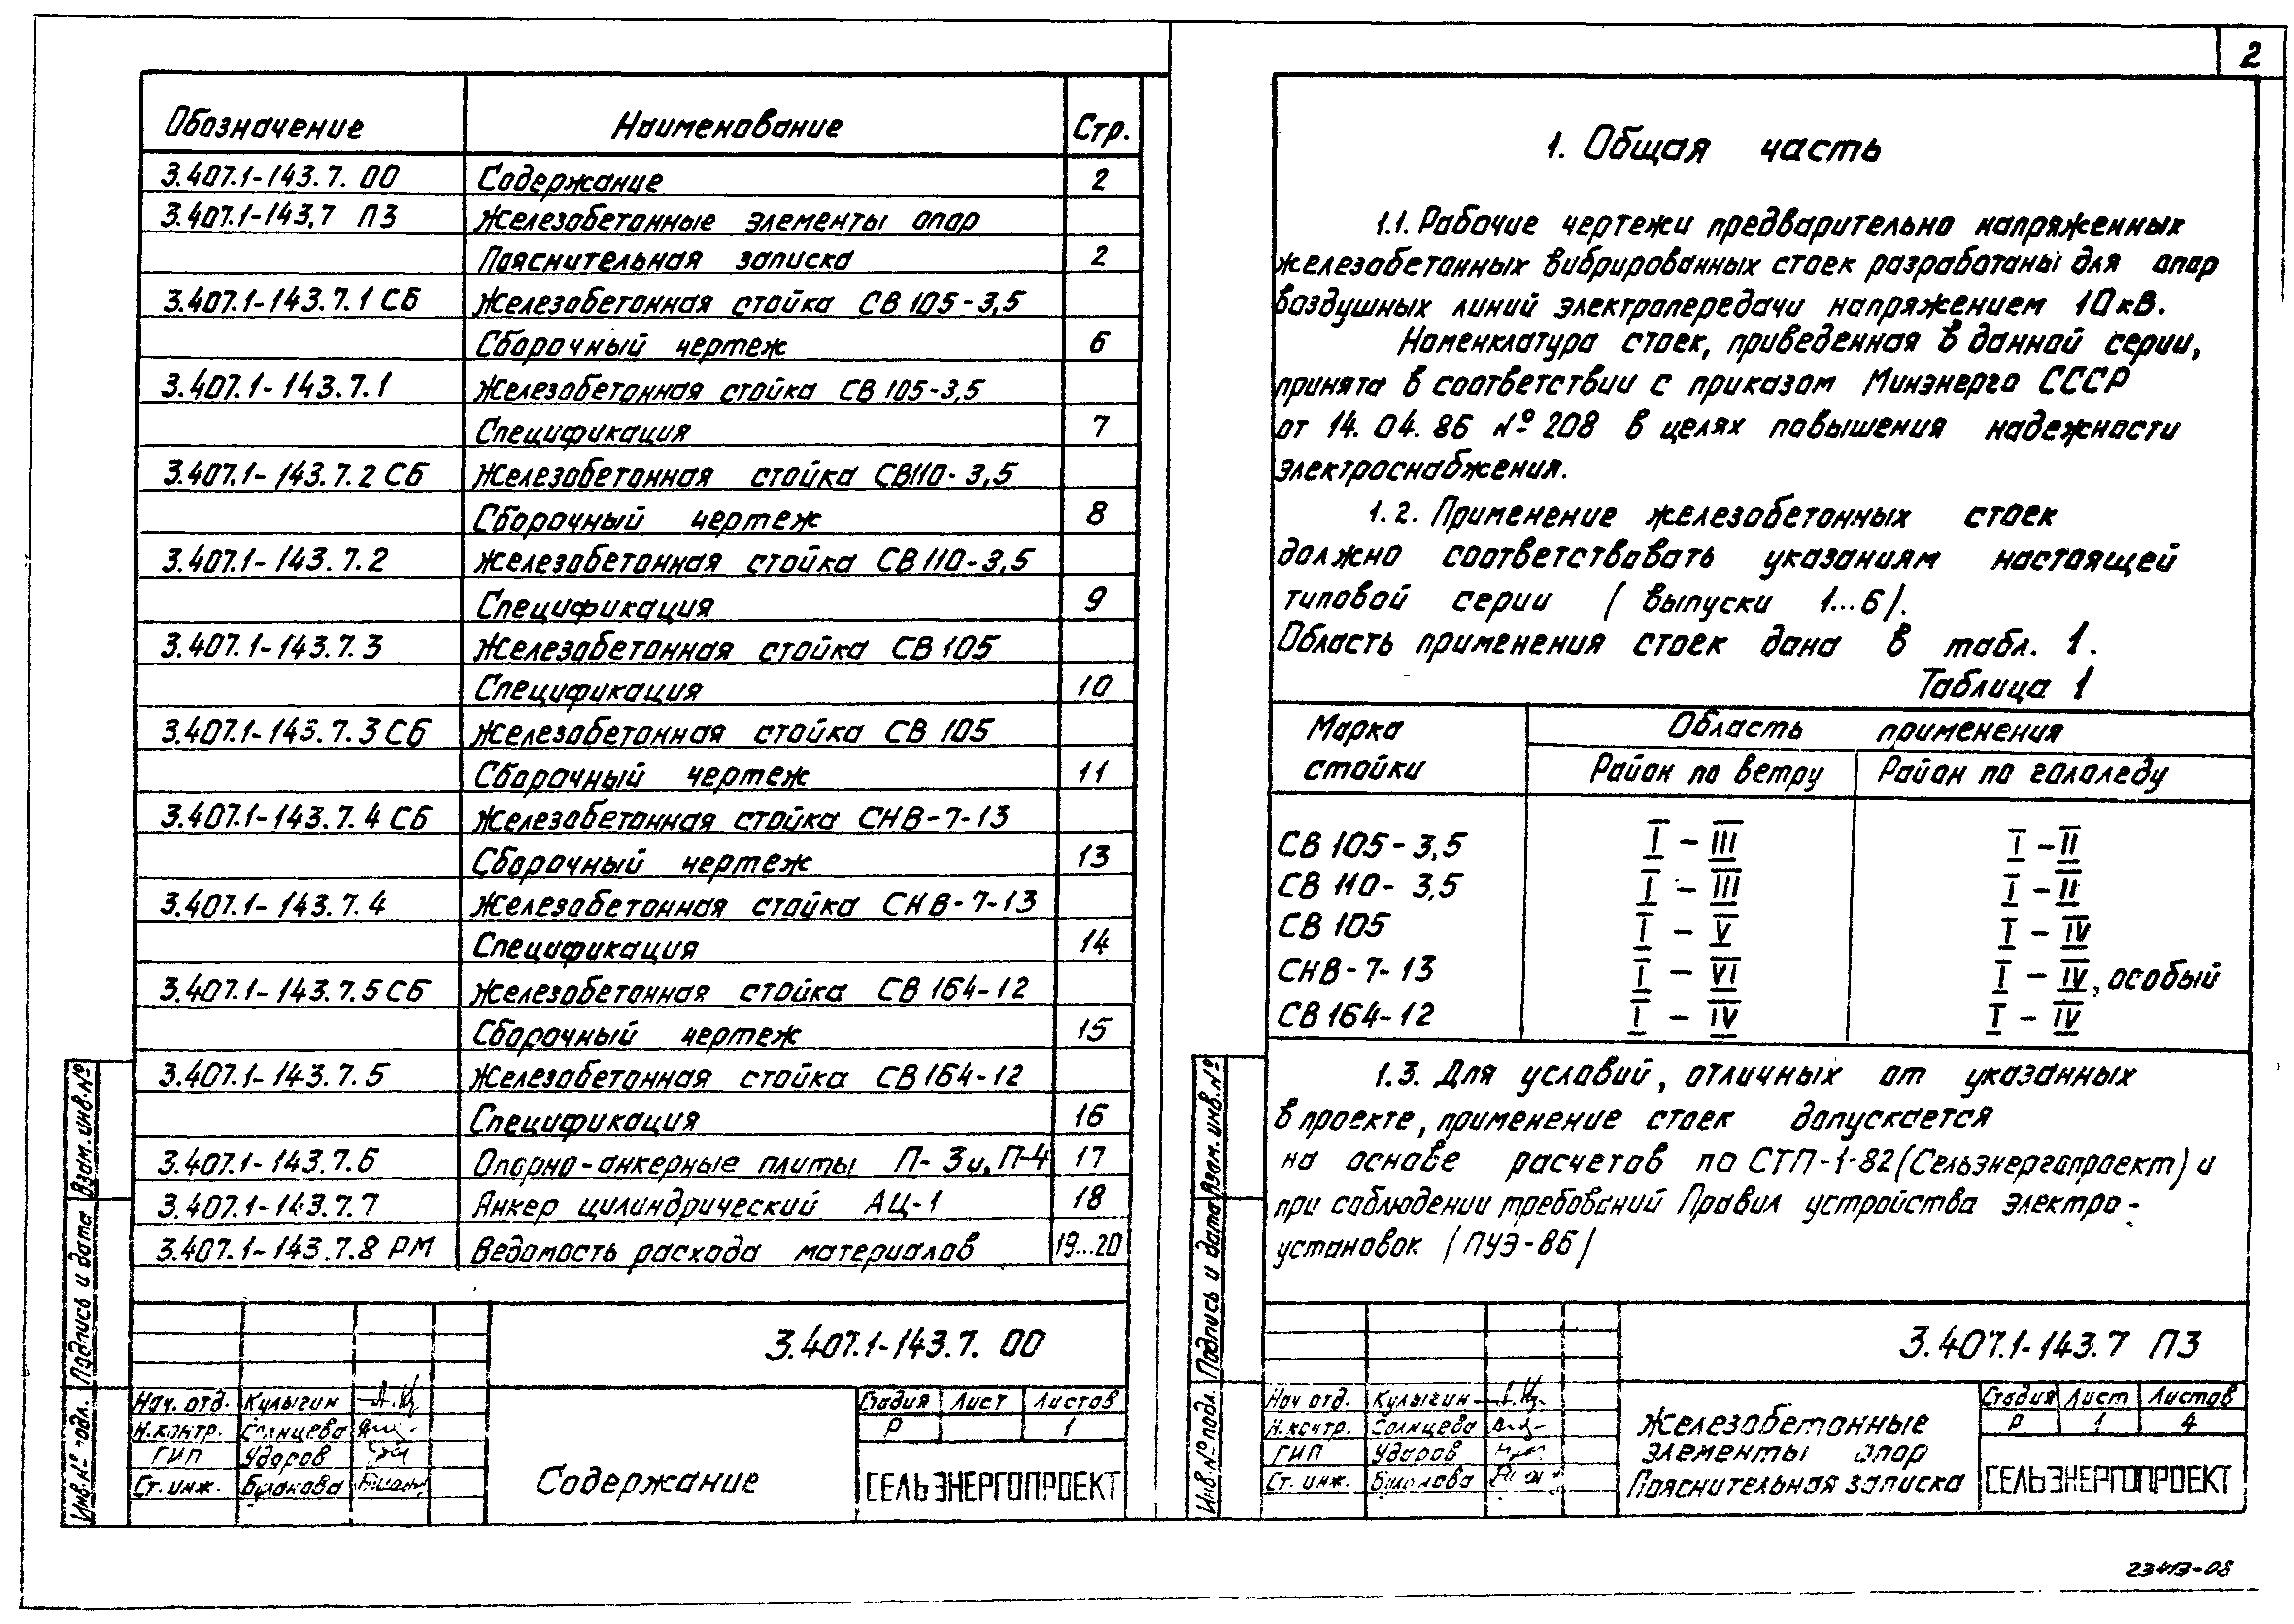 2
Обозначение Наименование Стр.
3.407.1-143.7.00 Содержание 2
3.407.1-143.7 ПЗ Железобетонные элементы опор
Пояснительная записка 2
3.407.1-143.7.1 СБ Железобетонная стойка СВ 105-3,5
Сборочный чертеж 6
3.407.1-143.7.1 Железобетонная стойка СВ 105-3,5
Спецификация 7
3.407.1-143.7.2 СБ Железобетонная стойка СВ110-3,5
Сборочный чертеж 8
3.407.1-143.7.2 Железобетонная стойка СВ 110-3,5
Спецификация 9
3.407.1-143.7.3 Железобетонная стойка СВ 105
Спецификация 10
3.407.1-143.7.3 СБ Железобетонная стойка СВ 105
Сборочный чертеж 11
3.407.1-143.7.4 СБ Железобетонная стойка СНВ-7-13
Сборочный чертеж 13
3.407.1-143.7.4 Железобетонная стойка СНВ-7-13
Спецификация 14
3.407.1-143.7.5 СБ Железобетонная стойка СВ 164-12
Сборочный чертеж 15
3.407.1-143.7.5 Железобетонная стойка СВ 164-12
Спецификация 16
3.407.1-143.7.6 Опорно-анкерные плиты П-3и, П-4 17
3.407.1-143.7.7 Анкер цилиндрический АЦ-1 18
3.407.1-143.7.8 РМ Ведомость расхода материалов 19...20
3.407.1-143.7.00
Нач. отд. Кулыгин
Н.контр. Солнцева
ГИП Ударов
Ст. инж.
Содержание
Стадия Лист Листов
Р 1
СЕЛЬЭНЕРГОПРОЕКТ
Инв.№ подл. Подпись и дата Взам. инв.№
1. Общая часть
1.1. Рабочие чертежи предварительно напряженных
железобетонных вибрированных стоек разработаны для опор
воздушных линий электропередачи напряжением 10 кВ.
Номенклатура стоек, приведенная в данной серии,
принята в соответствии с приказом Минэнерго СССР
от 14.04.86 № 208 в целях повышения надежности
электроснабжения.
1.2. Применение железобетонных стоек
должно соответствовать указаниям настоящей
типовой серии (выпуски 1...6).
Область применения стоек дана в табл. 1.
Таблица 1
Марка стойки Область применения
Район по ветру Район по гололеду
СВ 105-3,5 I - III I - II
СВ 110-3,5 I - III I - II
СВ 105 I - V I - IV
СНВ-7-13 I - VI I - IV, особый
СВ 164-12 I - IV I - IV
1.3. Для условий, отличных от указанных
в проекте, применение стоек допускается
на основе расчетов по СТП-1-82 (Сельэнергопроект) и
при соблюдении требований Правил устройства электро-
установок (ПУЭ-86)
3.407.1-143.7 ПЗ
Нач отд. Кулыгин
Н.контр. Солнцева
ГИП Ударов
Ст. инж.
Железобетонные
элементы опор
Пояснительная записка
Стадия Лист Листов
Р 1 4
СЕЛЬЭНЕРГОПРОЕКТ
Инв.№ подл. Подпись и дата Взам. инв.№
23413-08